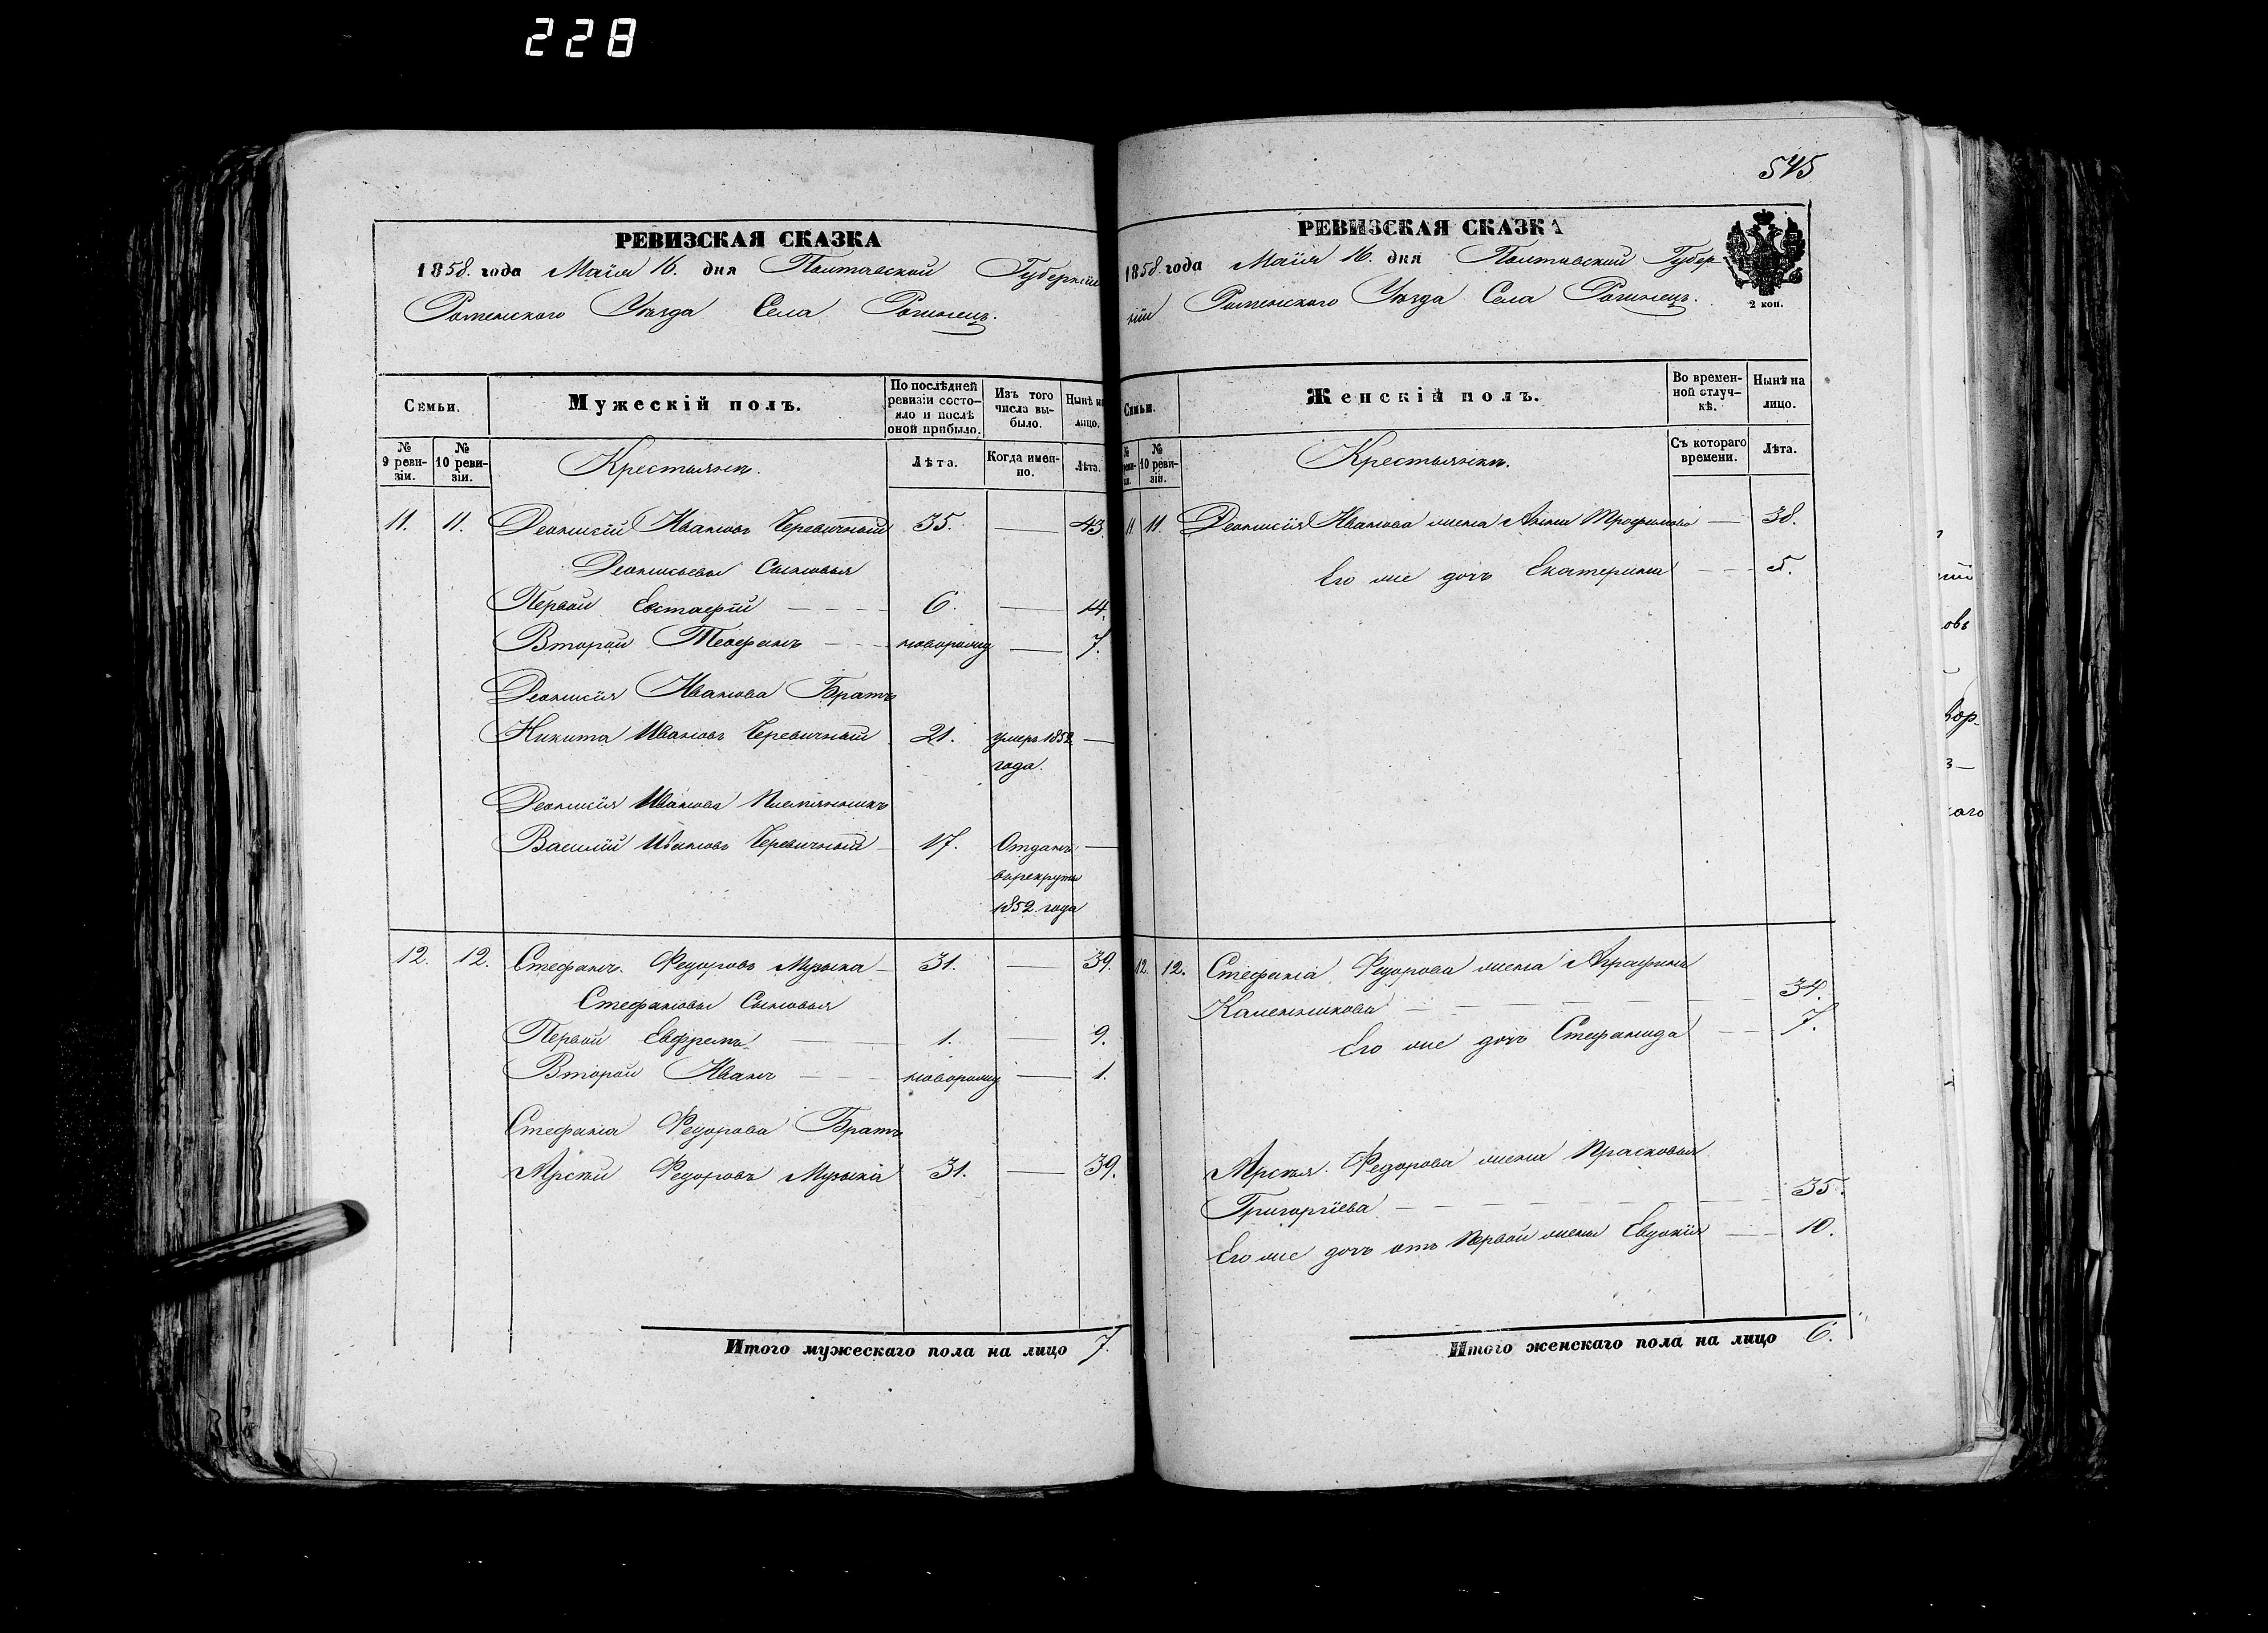 228
РЕВИЗСКАЯ СКАЗКА
1858. года Маія 16. дня Полтавской Губерніи
Роменскаго Уѣзда Села Рогинец.
Семьи.
Мужескій полъ.
По послѣдней ревизіи состояло и послѣ оной прибыло.
Изъ того числа выбыло.
Нынѣ на лицо.
№ 9 ревизіи.
№ 10 ревизіи.
Крестьянъ.
Лѣта.
Когда именно.
Лѣта.
11. 11. Деонисій Ивановъ Черевичный 35. — 43.
Деонисьевы Сыновья
Первой Евстафій — 6. — 14.
Второй Теофанъ — новорожд — 7.
Деонисія Иванова Братъ
Никита Ивановъ Черевичный 21. умеръ 1852 —
года.
Деонисія Иванова Племянникъ
Василій Ивановъ Черевичный — 17. Отданъ —
ворекруты
1852. года
12. 12. Стефанъ Федоровъ Музыка — 31. — 39.
Стефановы Сыновья
Первой Евфремъ — 1. — 9.
Второй Иванъ — новорожд — 1.
Стефана Федорова Братъ
Арсѣй Федоровъ Музыка 31. — 39.
Итого мужескаго пола на лицо 7.
545
РЕВИЗСКАЯ СКАЗКА
1858. года Маія 16. дня Полтавской Губер
ніи Роменскаго Уѣзда Села Рогинец.
2 коп.
Семьи.
Женскій полъ.
Во временной отлучкѣ.
Нынѣ на лицо.
№ реви- зіи.
№ 10 ревизіи.
Крестьянки.
Съ котораго времени.
Лѣта.
11. 11. Деонисія Иванова жена Анна Трофимова — 38.
Его же дочь Екатерина — 5.
12. 12. Стефана Федорова жена Аграфина
Каленникова — 34.
Его же дочь Стефанида — 7.
Арсѣя Федорова жена Прасковья
Григоріева — 35.
Его же дочь отъ первой жены Евдокія — 10.
Итого женскаго пола на лицо 6.